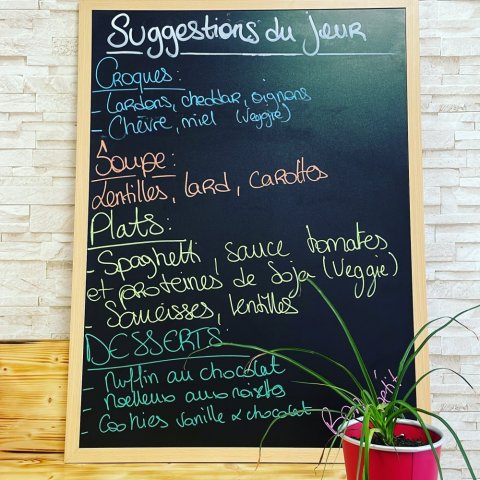 Suggestions du jour
Croques:
- Lardons, cheddar, oignons
- Chèvre, miel (veggie)
Soupe:
Lentilles, lard, carottes
Plats:
- Spaghetti, sauce tomates
et protéines de soja (veggie)
- Saucisses, lentilles
DESSERTS:
- Muffin au chocolat
- Moelleux aux noisettes
- Cookies vanille & chocolat